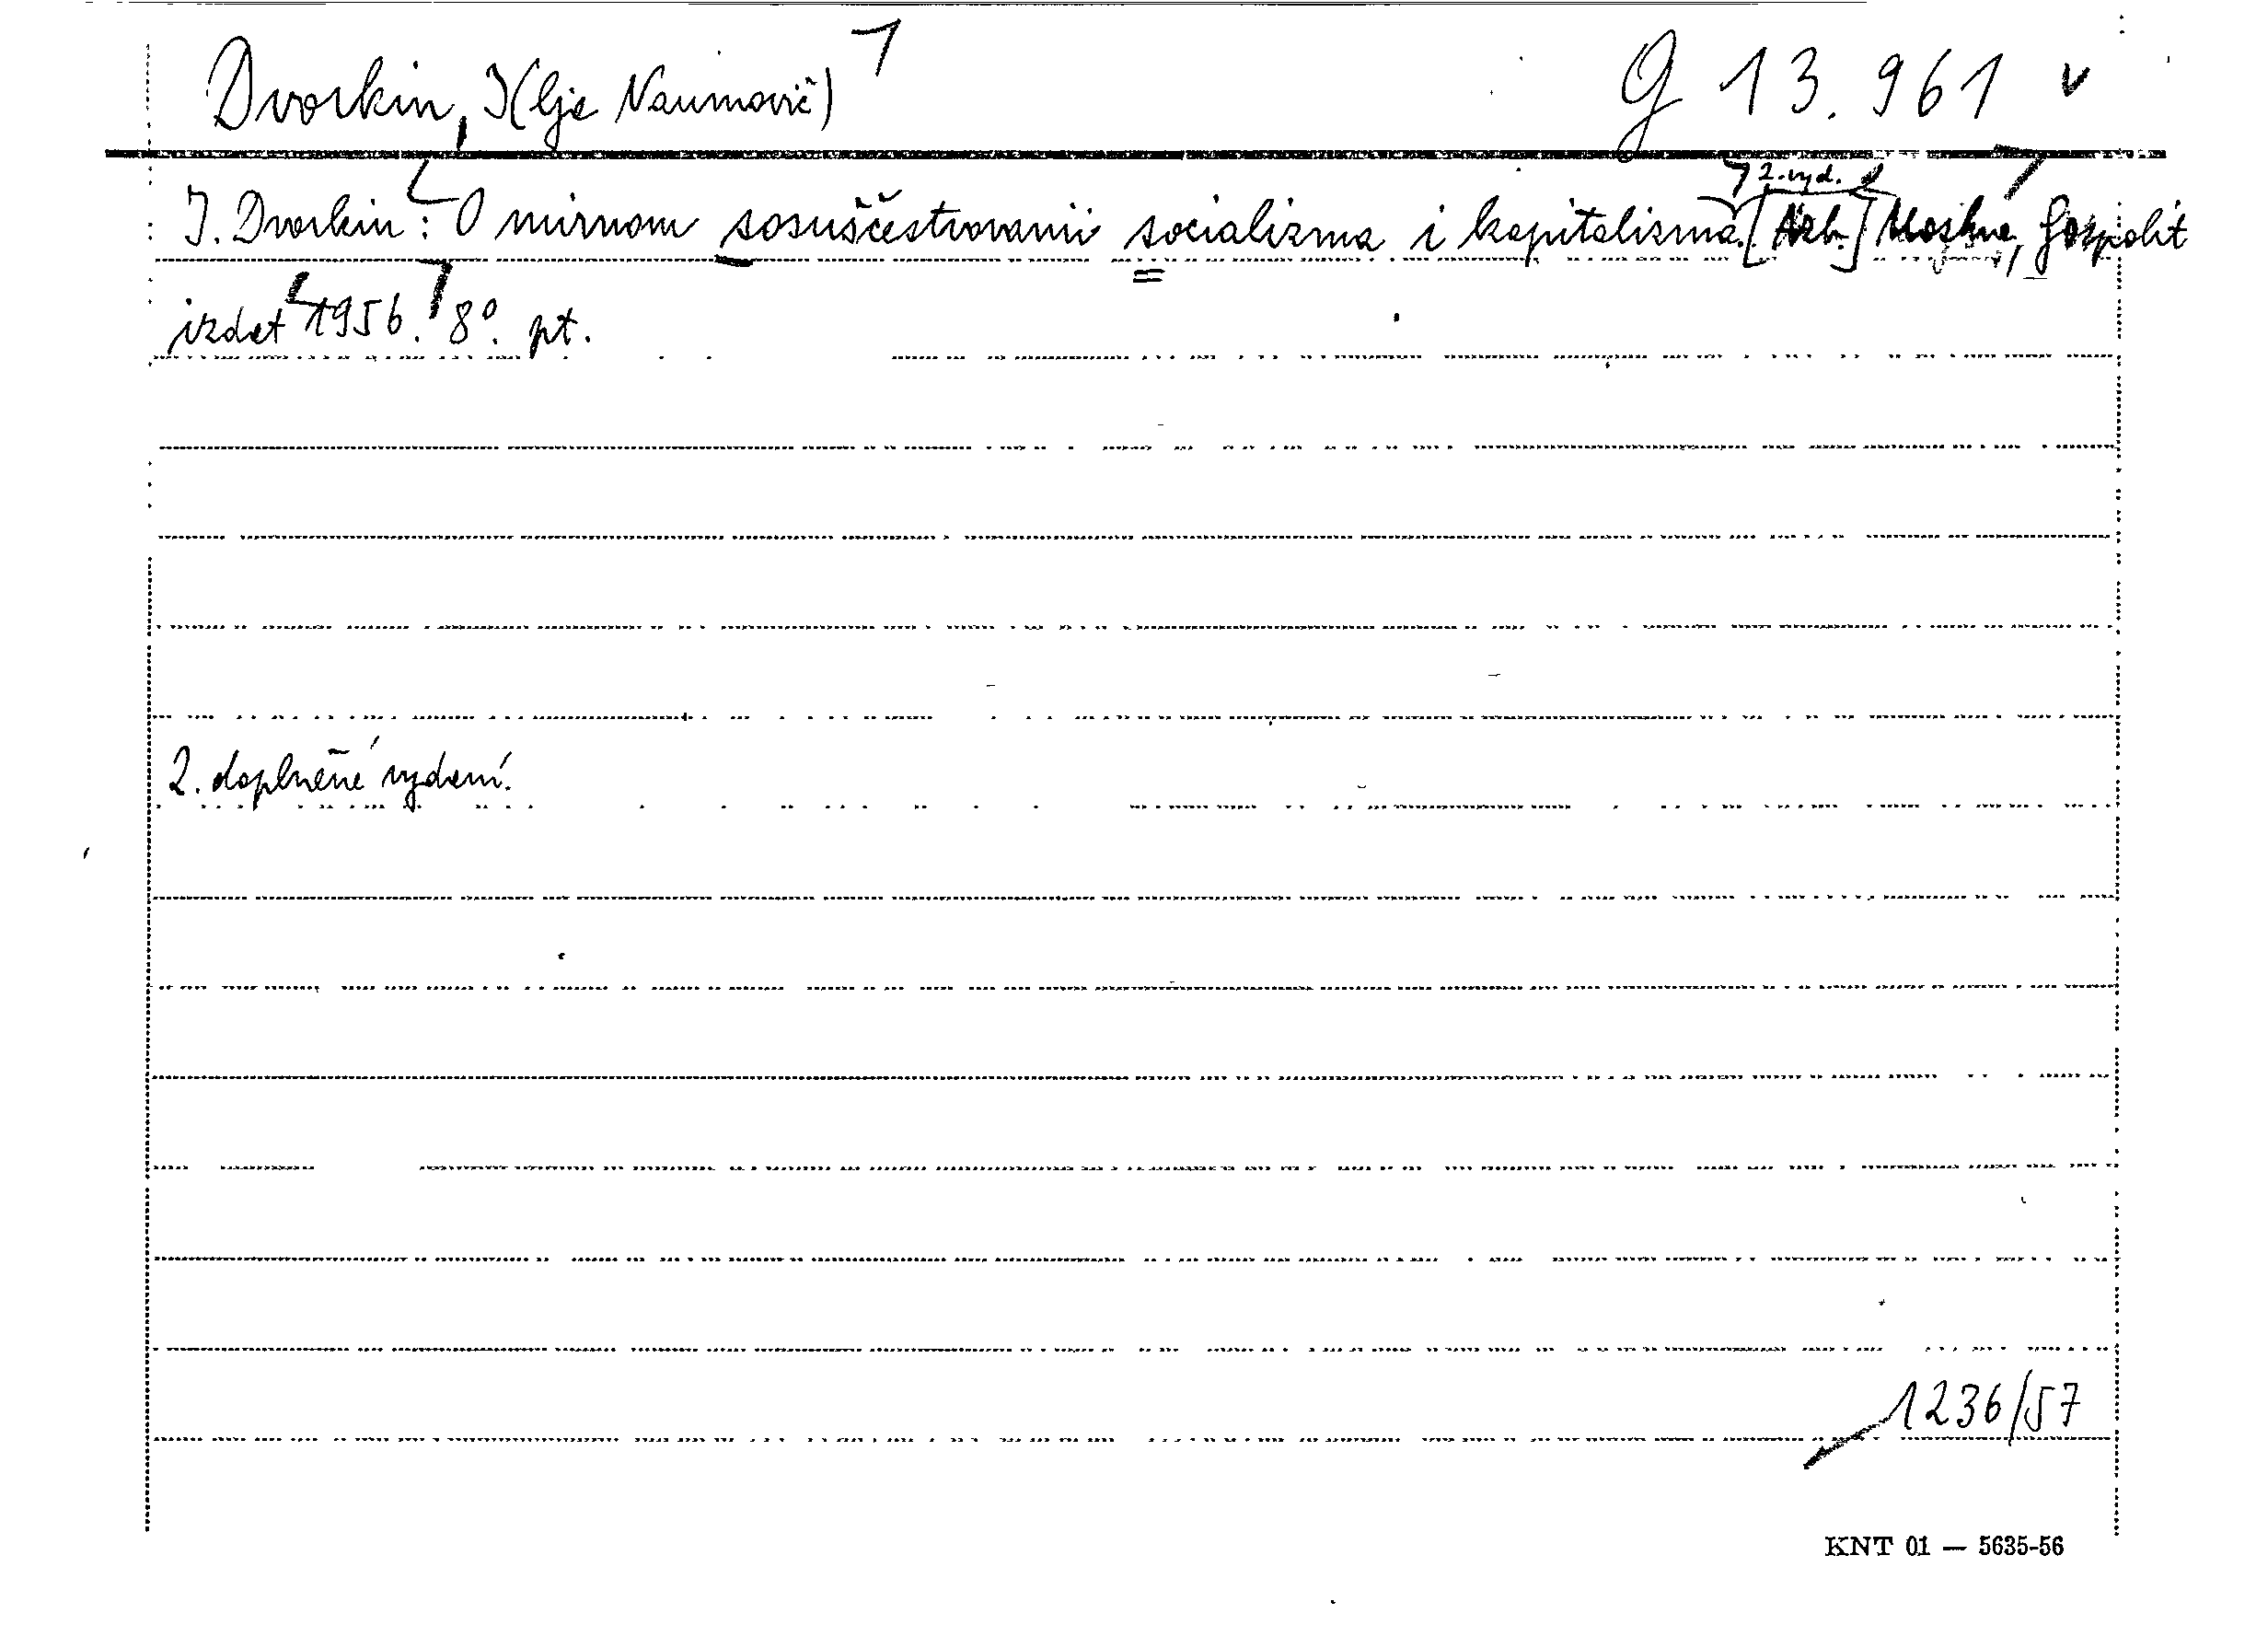 Dvorkin, I(lja Naumovič) G 13.961
2. vyd.
I. Dvorkin: O mirnom sosuščestvovanii socializma i kapitalizma. [Azb.] Moskva, Gospolit
izdat 1956. 8°. pt.
2. doplněné vydání.
1236/57
KNT 01 — 5635-56